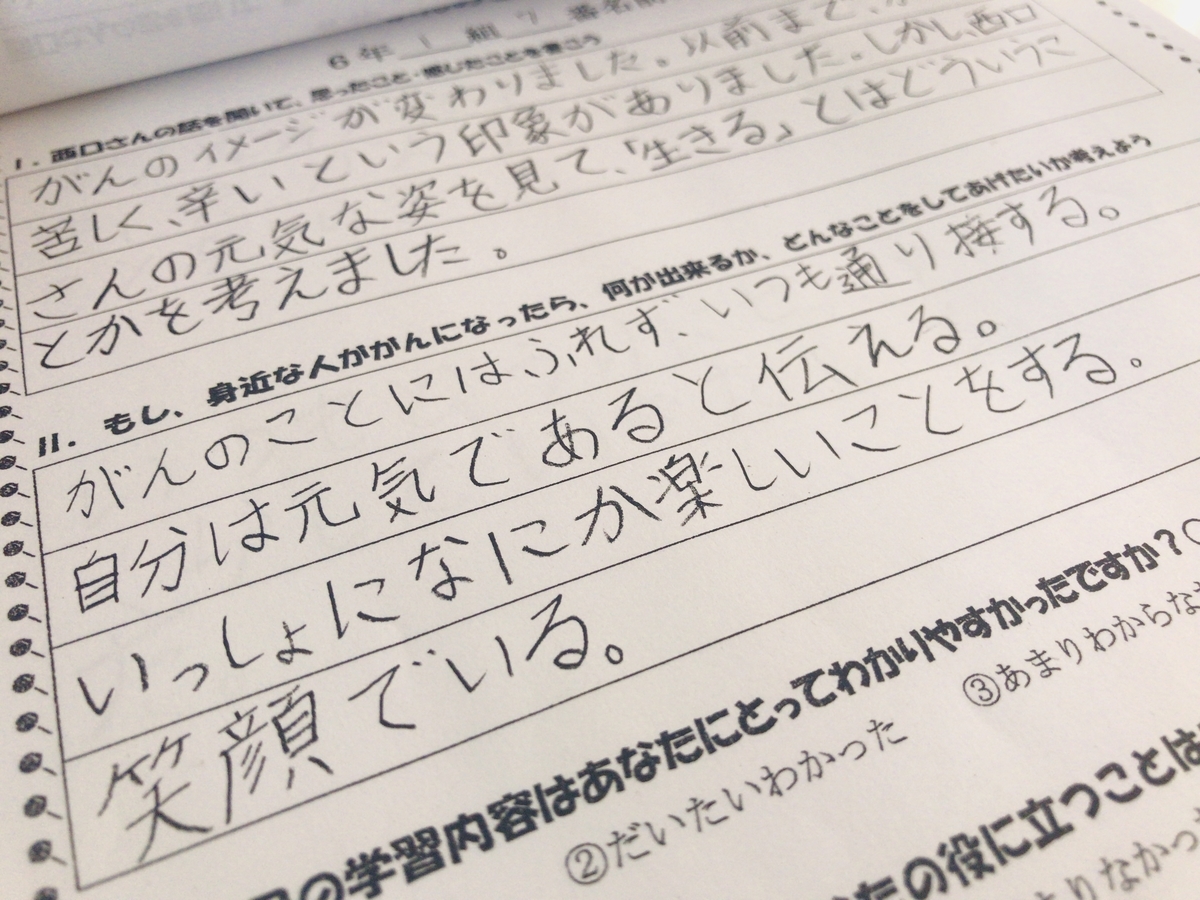 6年 1 組 7 番名前
I. 西口さんの話を聞いて、思ったこと・感じたことを書こう
がんのイメージが変わりました。以前まで、
苦しく、辛いという印象がありました。しかし、西口
さんの元気な姿を見て、「生きる」とはどういうこ
とかを考えました。
II. もし、身近な人ががんになったら、何が出来るか、どんなことをしてあげたいか考えよう
がんのことにはふれず、いつも通り接する。
自分は元気であると伝える。
いっしょになにか楽しいことをする。
笑顔でいる。
の学習内容はあなたにとってわかりやすかったですか?
②だいたいわかった ③あまりわからな
たの役に立つことは
まりなかっ